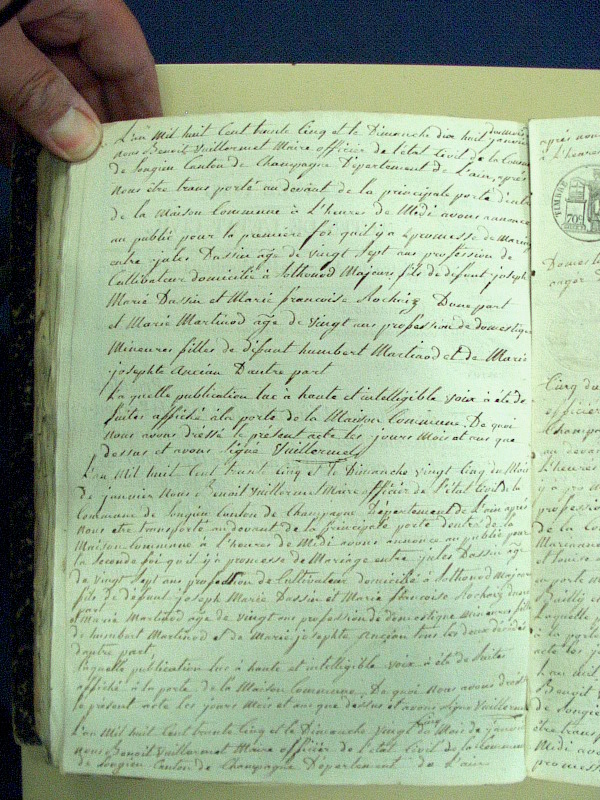 L'an Mil huit Cent trente Cinq et le Dimanche dix huit du mois janvier
nous Benoit Vuillermet Maire officier de l'état Civil de la Commune
de Songieu Canton de Champagne Département de L'ain, après
nous être trans porté au devant de la principale porte d'entré
de la Maison Commune à L'heures de Midi avons annoncé
au publié pour la première foi qu'il y a promesse de Mariage
entre jules Dassin âge de vingt sept ans profession de
Cultivateur domicilié à Sothonod Majeurs fils de défunt joseph
Marie Dassin et Marie francoise Dune part
et Marie Martinod âge de vingt ans profession de domestique
Mineures filles de défunt humbert Martinod et de Marie
josephte Ancian Dautre part
La quelle publication lue à haute et intelligible voix à été de
suites affiché à la porte de la Maison Commune. De quoi
Nous avons dréssé le présent acte les jours Mois et ans que
dessus et avons signé Vuillermet
L'an Mil huit Cent trente Cinq et le Dimanche vingt Cinq du Mois
de janvier Nous Benoit Vuillermet Maire officier de l'état Civil de la
Commune de Songieu Canton de Champagne Département de L'ain après
nous être transporté au devant de la principale porte d'entré de la
Maison Commune à L'heures de Midi avons annoncé au publié pour
la seconde foi qu'il y a promesse de Mariage entre jules Dassin âge
de vingt sept ans profession de Cultivateur domicilié à Sothonod Majeur
fils de défunt joseph Marie Dassin et Marie francoise dune
part
et Marie Martinod âge de vingt ans profession de domestique mineures fille
de humbert Martinod et de Marie josephte Ancian tous les deux décédés
dautre part,
laquelle publication lue à haute et intelligible voix à été de suites
affiché à la porte de la Maison Commune. De quoi Nous avons dréssé
le présent acte les jours Mois et ans que dessus et avons signé Vuillermet
L'an Mil huit Cent trente Cinq et le Dimanche vingt Cinq du Mois de janvier
nous Benoit Vuillermet Maire officier de l'état Civil de la Commune
de Songieu Canton de Champagne Département de L'ain
après nous
à L'heures
TIMBRE
70c
Domes
Cinq du
officier
Champa
au devan
L'heures
y à pro
profession
de la Co
Marianne
au porte
Laquelle
à la porte
acte les jo
L'an mil
Benoit V
de Songie
être transp
Midi avon
promesse